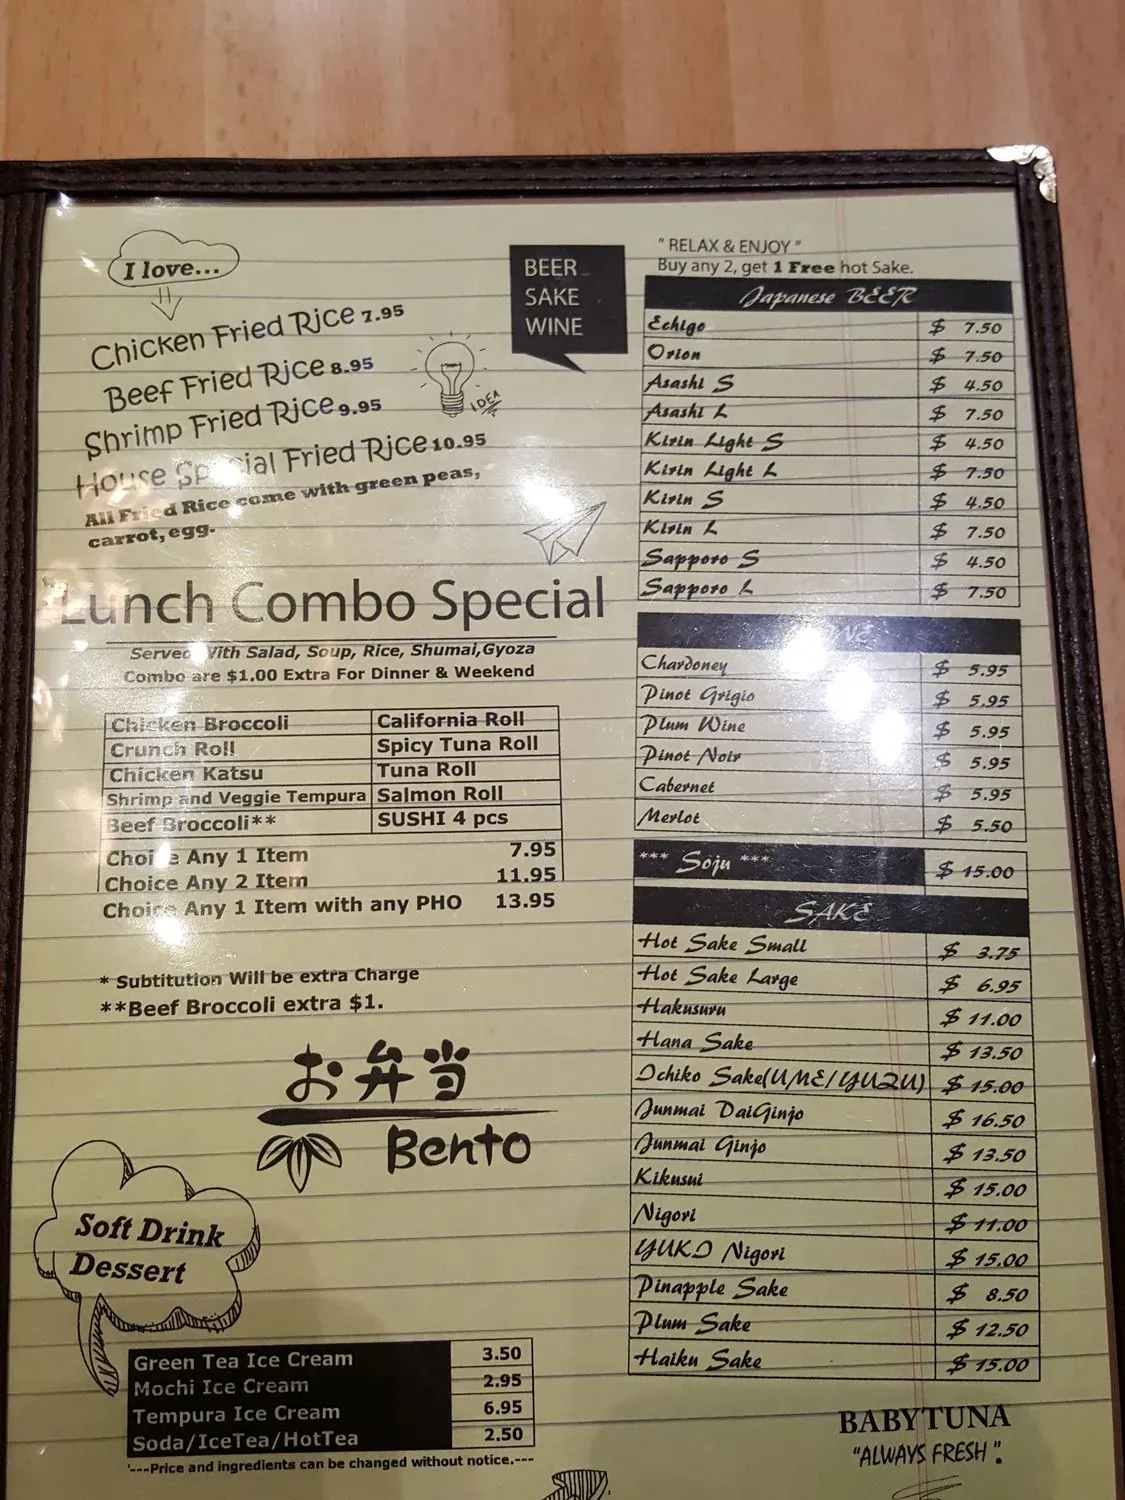 I love...
Chicken Fried Rice 7.95
Beef Fried Rice 8.95
Shrimp Fried Rice 9.95
House Special Fried Rice 10.95
All Fried Rice come with green peas,
carrot, egg.
IDEA
Lunch Combo Special
Served With Salad, Soup, Rice, Shumai,Gyoza
Combo are $1.00 Extra For Dinner & Weekend
Chicken Broccoli California Roll
Crunch Roll Spicy Tuna Roll
Chicken Katsu Tuna Roll
Shrimp and Veggie Tempura Salmon Roll
Beef Broccoli** SUSHI 4 pcs
Choice Any 1 Item 7.95
Choice Any 2 Item 11.95
Choice Any 1 Item with any PHO 13.95
* Subtitution Will be extra Charge
**Beef Broccoli extra $1.
お弁当
Bento
Soft Drink
Dessert
Green Tea Ice Cream 3.50
Mochi Ice Cream 2.95
Tempura Ice Cream 6.95
Soda/IceTea/HotTea 2.50
'---Price and ingredients can be changed without notice.---
BEER
SAKE
WINE
" RELAX & ENJOY "
Buy any 2, get 1 Free hot Sake.
Japanese BEER
Echigo $ 7.50
Orion $ 7.50
Asashi S $ 4.50
Asashi L $ 7.50
Kirin Light S $ 4.50
Kirin Light L $ 7.50
Kirin S $ 4.50
Kirin L $ 7.50
Sapporo S $ 4.50
Sapporo L $ 7.50
WINE
Chardoney $ 5.95
Pinot Grigio $ 5.95
Plum Wine $ 5.95
Pinot Noir $ 5.95
Cabernet $ 5.95
Merlot $ 5.50
*** Soju *** $ 15.00
SAKE
Hot Sake Small $ 3.75
Hot Sake Large $ 6.95
Hakusuru $ 11.00
Hana Sake $ 13.50
Ichiko Sake(UME/YUZU) $ 15.00
Junmai DaiGinjo $ 16.50
Junmai Ginjo $ 13.50
Kikusui $ 15.00
Nigori $ 11.00
YUKI Nigori $ 15.00
Pinapple Sake $ 8.50
Plum Sake $ 12.50
Haiku Sake $ 15.00
BABYTUNA
"ALWAYS FRESH".